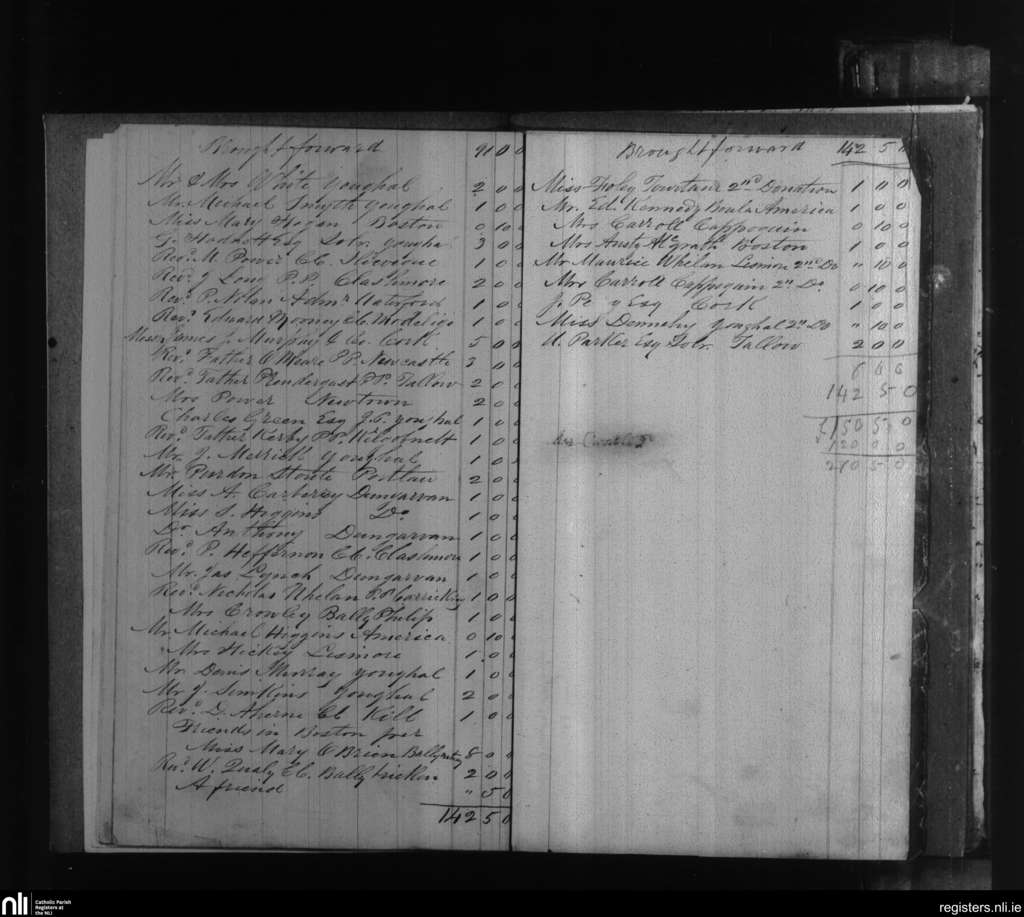 Brought forward 91 0 0
Mr & Mrs White Youghal 2 0 0
Mr Michael Smyth Youghal 1 0 0
Miss Mary Hogan Boston 0 10 0
G. Esq Solr. Youghal 3 0 0
Revd. M. Power C.C. 1 0 0
Revd. J. Long P.P. Clashmore 2 0 0
Revd. P. Nolan Admr Waterford 1 0 0
Revd. Edward Mooney CC. Modeligo 1 0 0
James J. Murphy & Co. Cork 5 0 0
Revd. Father O Meara P.P. Newcastle 3 0 0
Revd. Father Prendergast P.P. Tallow 2 0 0
Mrs Power Newtown 2 0 0
Charles Green Esq J.P. Youghal 1 0 0
Revd. Father Kerby P.P. 1 0 0
Mr. J. Merrick Youghal 1 0 0
Mr. Purdon Portlaw 2 0 0
Miss A. Carbery Dungarvan 1 0 0
Miss S. Higgins Do 1 0 0
Dr. Anthony Dungarvan 1 0 0
Revd. P. Heffernon CC. Clashmore 1 0 0
Mr. Jas Lynch Dungarvan 1 0 0
Revd. Nicholas Whelan P.P. Carrick 1 0 0
Mrs Crowley Bally Philip 1 0 0
Mr. Michael Higgins America 0 10 0
Mrs Hickey Lismore 1 0 0
Mr. Denis Murray Youghal 1 0 0
Mr J. Simkins Youghal 2 0 0
Revd. D. Aherne CC Kill 1 0 0
Friends in Boston per
Miss Mary O Brien 8 0 0
Revd. W. Qualy CC. Ballybricken 2 0 0
A friend " 5 0
142 5 0
Brought forward 142 5 0
Miss Foley 2nd Donation 1 0 0
Mr. Ed. Kennedy America 1 0 0
Mrs Carroll Cappoquin 0 10 0
Mrs McGrath Boston 1 0 0
Mr Maurice Whelan Lismore 2nd Do " 10 0
Mrs Carroll Cappoquin 2nd Do. 0 10 0
J. Esq Cork 1 0 0
Miss Dennehy Youghal 2nd Do " 10 0
U. Parker Esq Solr. Tallow 2 0 0
142 5 0
150 5 0
120 0 0
270 5 0
nli
Catholic Parish
Registers at
the NLI
registers.nli.ie